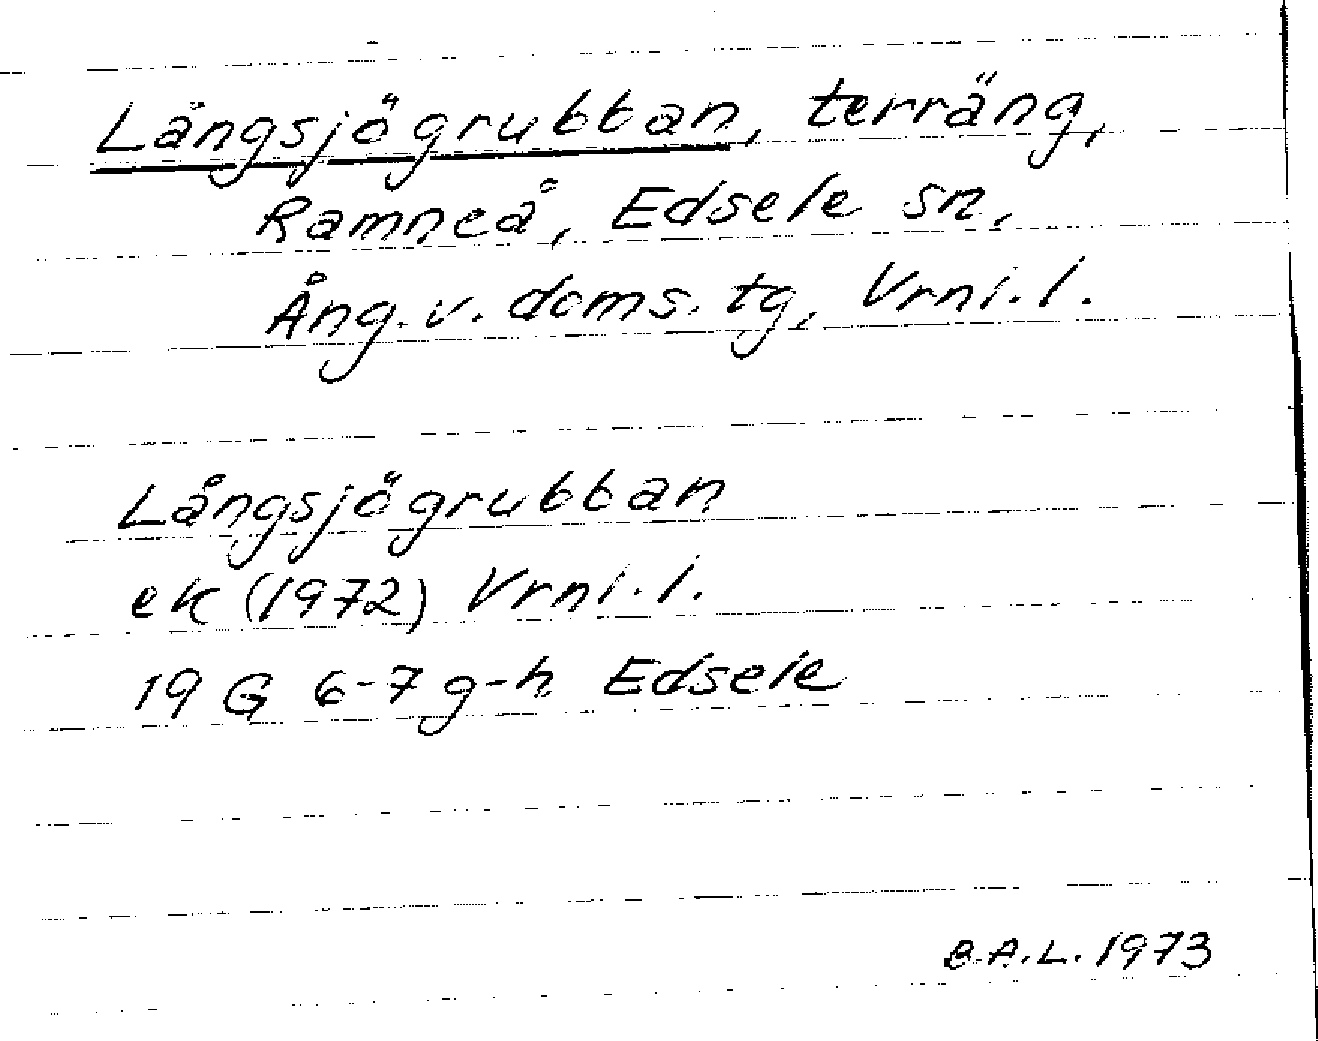 Långsjögrubban, terräng,
Ramneå, Edsele sn,
Ång. v. doms. tg, Vrnl. l.
Långsjögrubban
ek (1972) Vrnl. l.
19 G 6-7 g-h Edsele
B.A.L. 1973